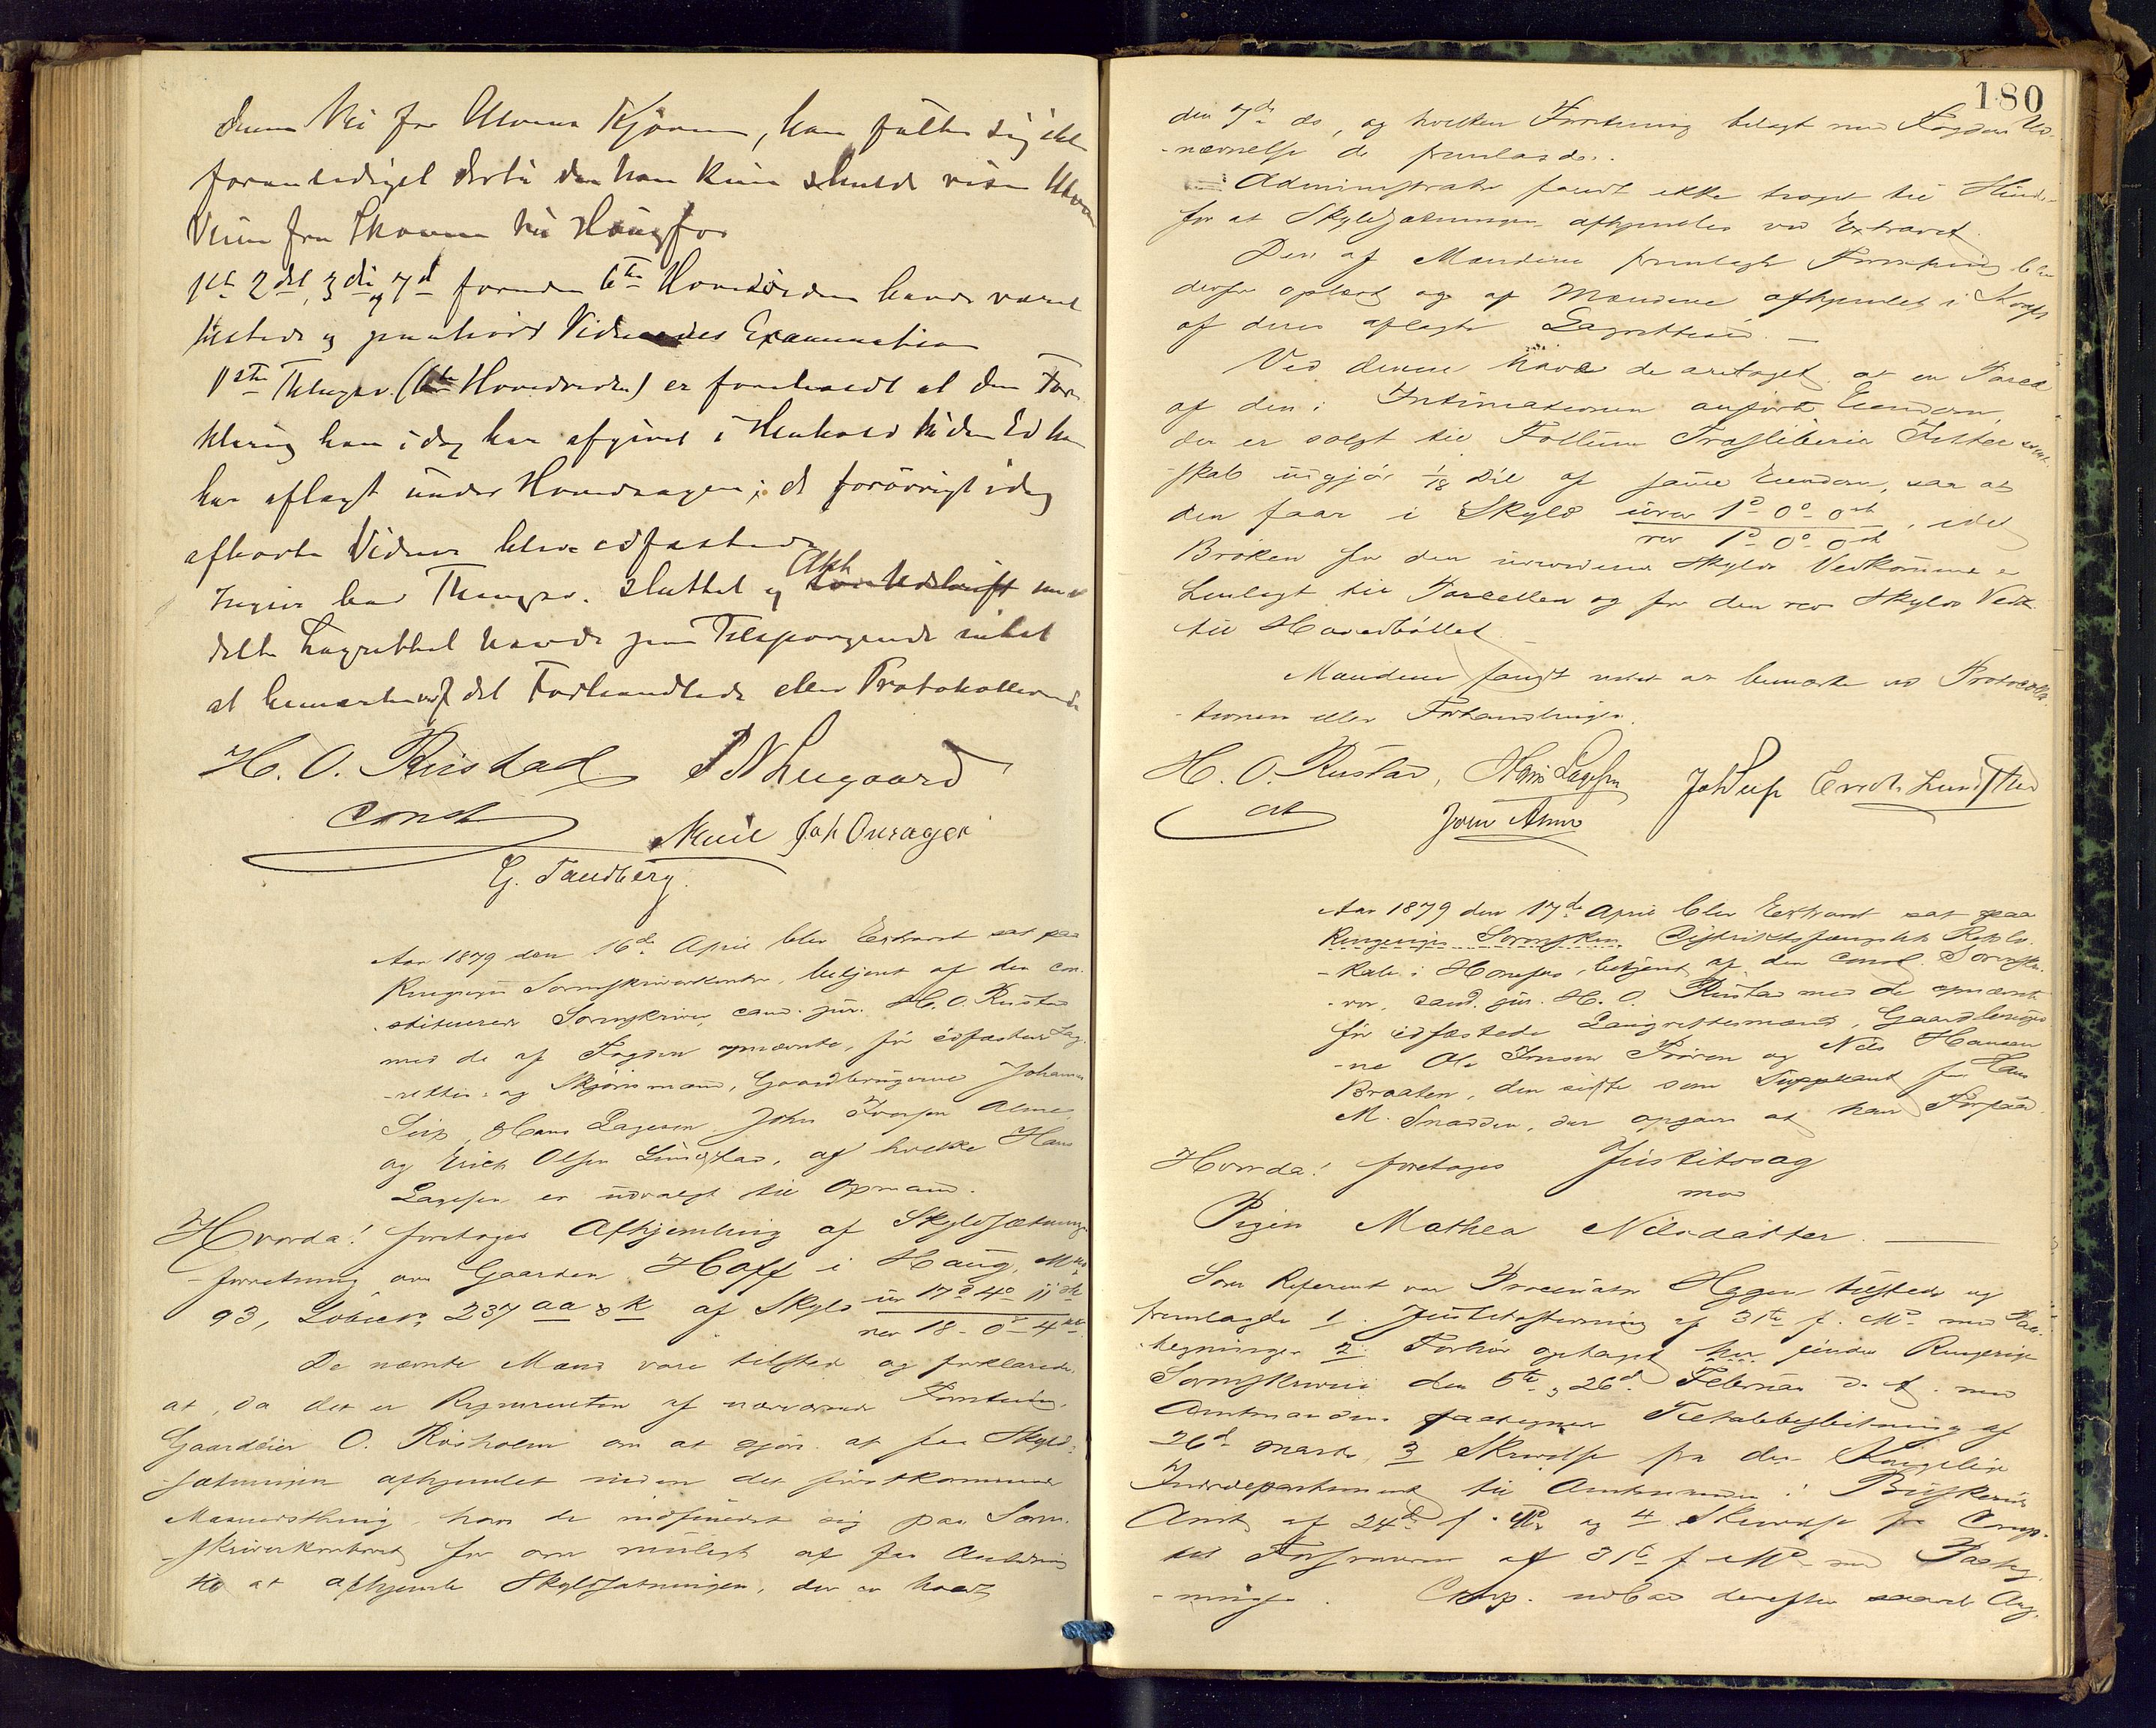 denne Vei for Kjøren, han følte sig ikke
foranlediget dertil da han kun skulde vise
Veien fra Skoven til Hougfos
1ste 2det, 3die og 7de foruden 6te Hovedvidne havde været
tilstede og paahørt Vidnernes Examination
1ste Thingsv. (6te Hovedvidne) er foreholdt at den For-
klaring han i dag har afgivet i Henhold til den Ed han
har aflagt under Hovedsagen; de forøvrigt idag
afhørte Vidner bleve edfæstede
Ingen havde Thingsv. sluttet og Akt med
dette Lagrettet havde paa Tilspørgende intet
at bemærke ved det Forhandlede eller Protokollerede
H. O. Rustad P N Lugaard
const
Muil Joh Onsager
G. Tandberg.
Aar 1879 den 16de April blev Extraret sat paa
Ringerigs Sorenskriverkontor, betjent af den con-
stituerede Sorenskriver, cand. jur. H. O. Rustad
med de af Fogden opnævnte, før edfæstede Lag-
rettes- og Skjønsmænd, Gaardbrugerne Johannes
Sup, Hans Lagesen, John Iversen Alme
og Erich Olsen Lundstad, af hvilke Hans
Lagesen er udvalgt til Opmand.
Hvorda! foretages Afhjemling af Skyldsætnings-
forretning over Gaarden Hoff i Haug, Mno
93, Løbeno 237 aa & k af Skyld uv 17 D 4 O 11 sk
rev 18 - 0 - 4 sk.
De nævnte Mænd vare tilstede og forklarede,
at, da det er Reqvirenten af nærværende Forretning,
Gaardeier O. Rosholm om at gjøre at faa Skyld-
sætningen afhjemlet inden det førstkommende
Maanedsthing, have de indfundet sig paa Soren-
skriverkontoret for om muligt at faa Anledning
til at afhjemle Skyldsætningen, der er holdt
180
den 7de ds, og hvilken Forretning belagt med Fogdens Ud-
nævnelse de fremlagde.
Administrator fandt ikke noget til Hinder
for at Skyldsætningen afhjemles ved Extraret.
Den af Mændene fremlagte Forretning blev
derfor oplæst og af Mændene afhjemlet i Kraft
af deres aflagte Lagretteed. —
Ved denne havde de antaget, at en Parcel
af den i Intimationen anførte Eiendom,
der er solgt til Follum Træsliberi Interessent-
skab udgjør 1/18 Del af samme Eiendom, saa at
den faar i Skyld urev 1 D 0 O 0 sk, idet
rev 1 D 0 O 0 sk
Brøken for den urevid. Skylds Vedkommende er
henlagt til Parcellen og for den rev. Skylds Vedk.
til Hovedbøllet.
Mændene fandt intet at bemærke ved Protocolla-
tionen eller Forhandlingen.
H. O. Rustad, Hans Lagesen Joh Sup Erick Lundsthad
cst John Alme
Aar 1879 den 17de April blev Extraret sat paa
Ringerigs Sorenskr. Distriktsfængslets Retslo-
kale i Hønefos, betjent af den const. Sorenskri-
ver, cand. jur. H. O. Rustad med de opnævnte
før edfæstede Laugrettesmænd, Gaardbruger-
ne Ole Prøven og Nils Hansen
Braaten, den sidste som Suppleant for Hans
M. Snadden, der opgaves at have Forfald.
Hvorda! foretages Justitssag
mod
Pigen Mathea Nilsdatter. —
Som Referent var Procurator Heggen tilstede og
fremlagde 1. Justitsstevning af 31te f. M. med Paa-
tegninger 2. Forhør optaget her under Ringerigs
Sorenskriveri den 5te, 26de Februar d. A. med
Amtmandens paategnede Tiltalebeslutning af
26de Marts, 3 Skrivelse fra det Kongelige
Indredepartement til Amtmanden i Buskeruds
Amt af 24de f. M. og 4 Skrivelse fra Comp.
til Forsvareren af 31te f. M. med Paateg-
ninger. Comp. udbad derefter saavel Ang.